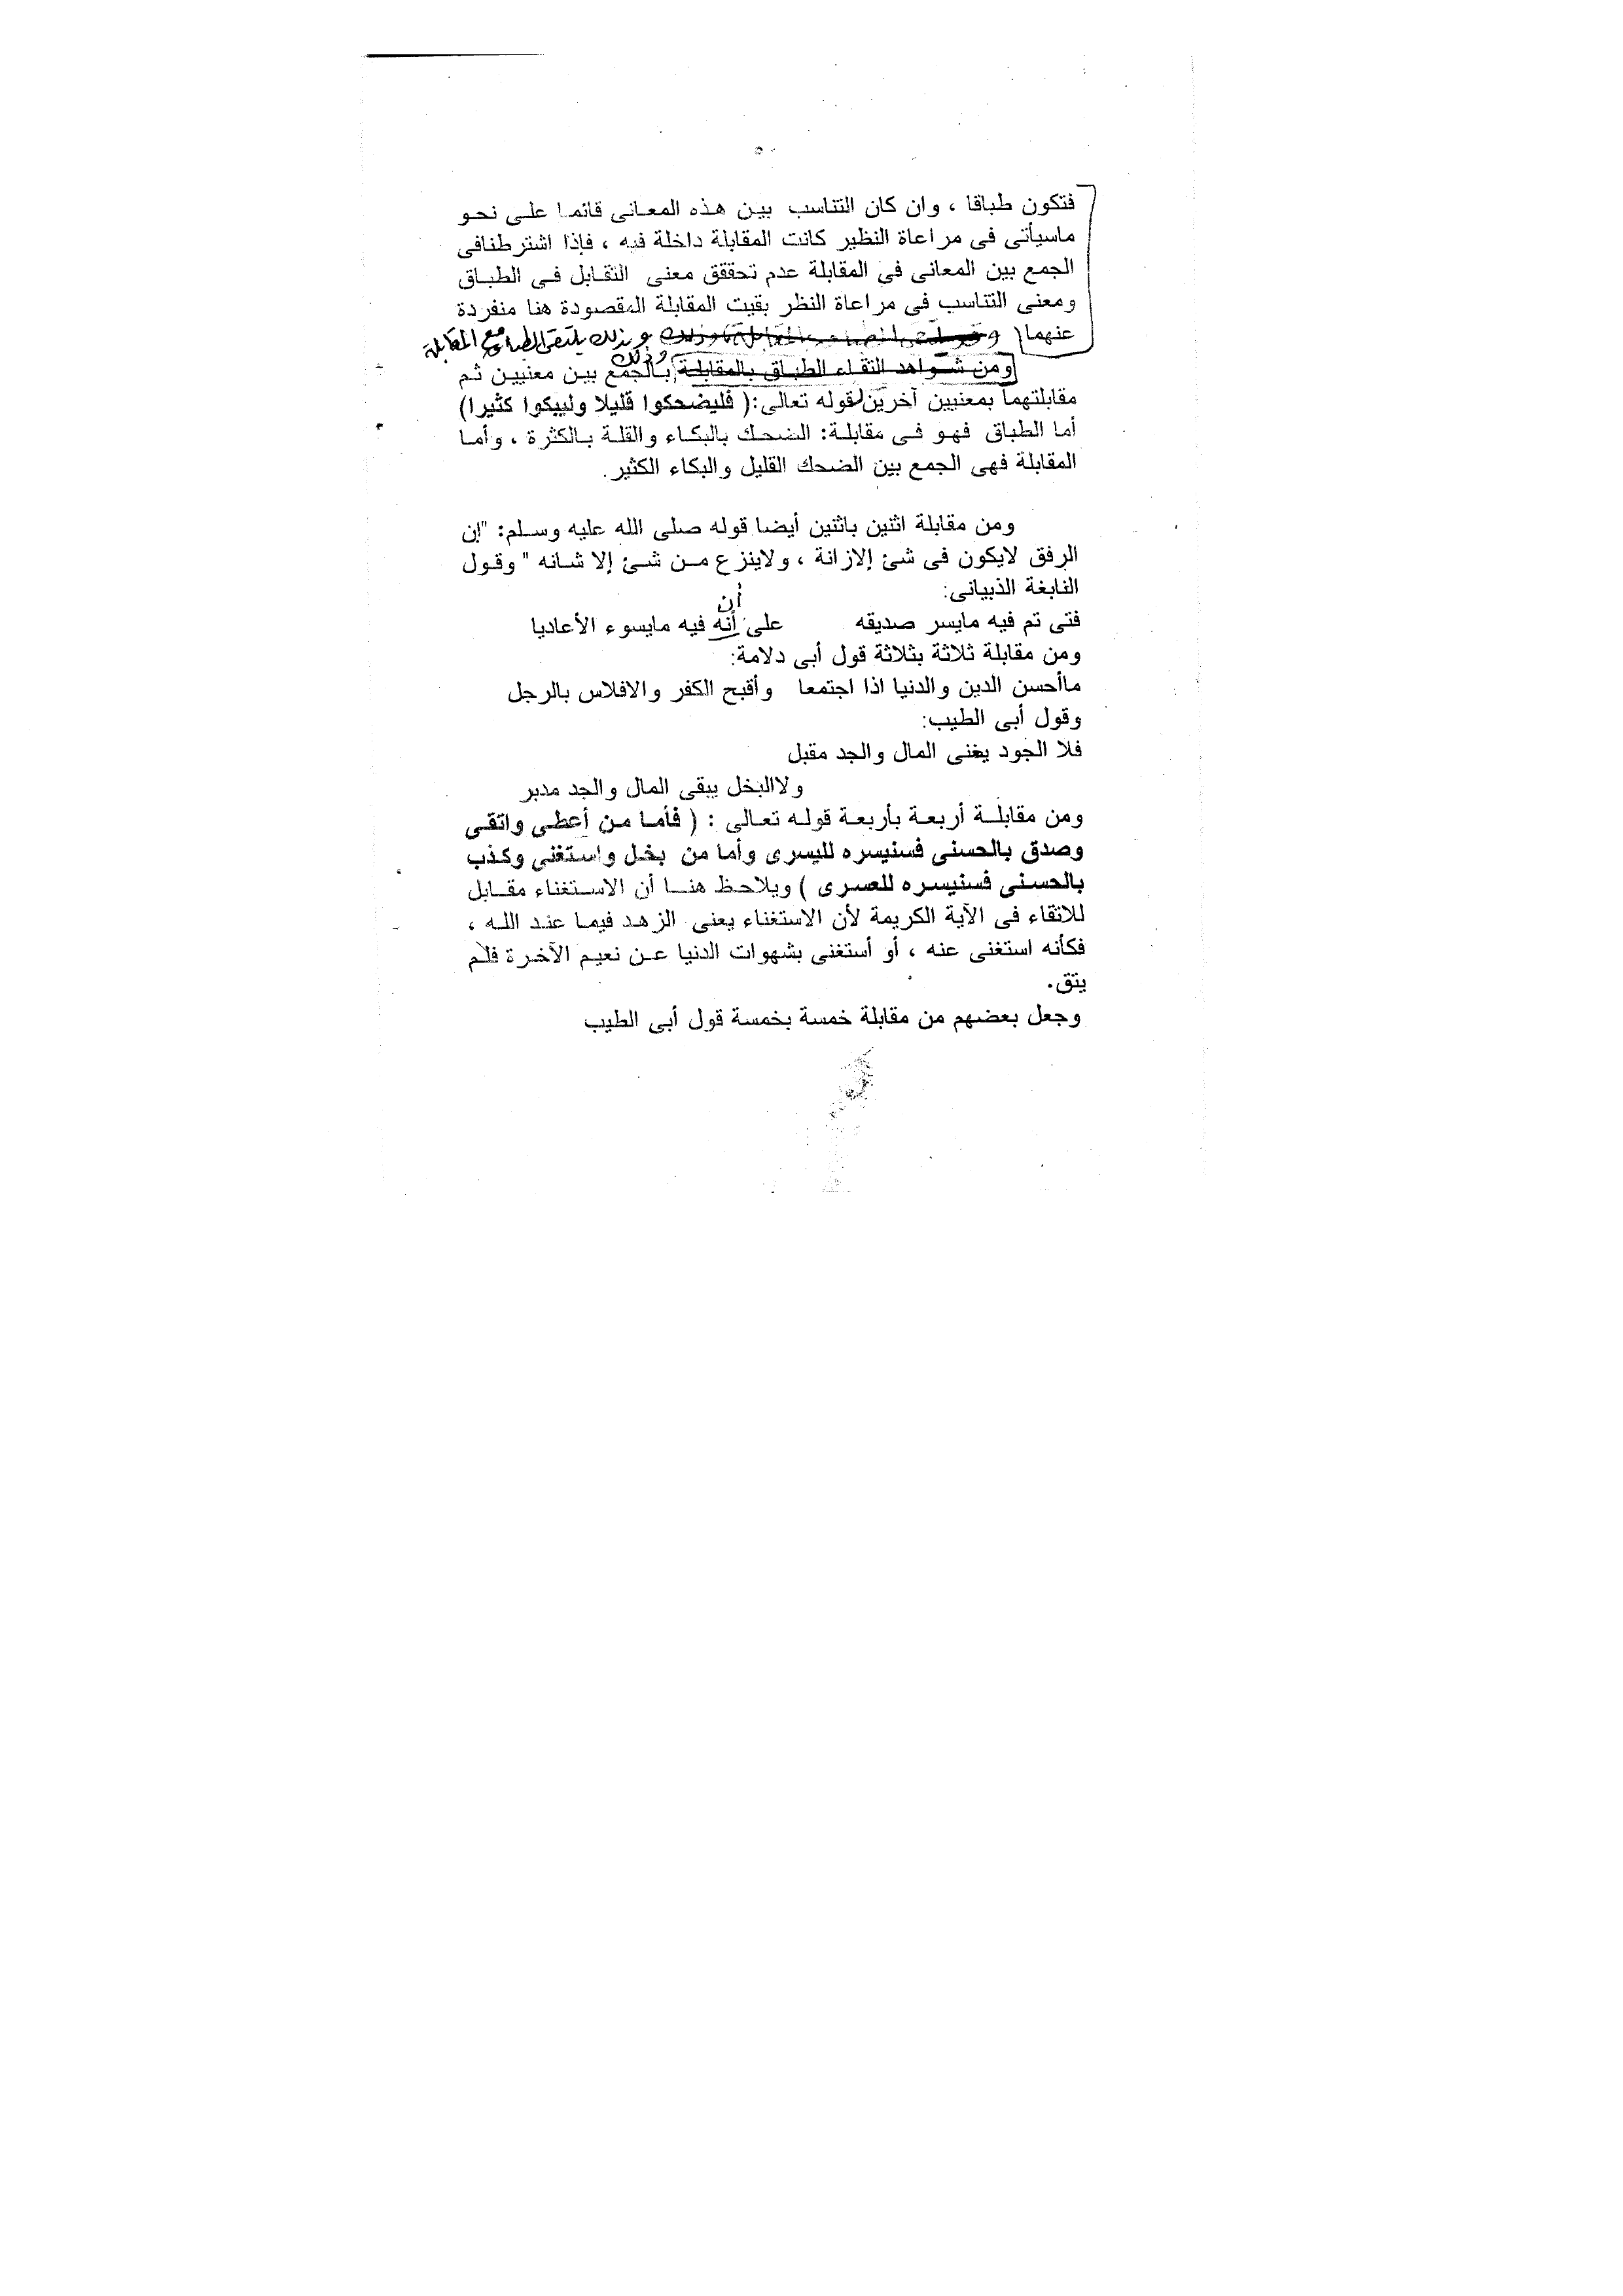 فتكون طباقا ، وان كان التناسب بين هذه المعانى قائما على نحو
ماسيأتى فى مراعاة النظير كانت المقابلة داخلة فيه ، فإذا اشترطنافى
الجمع بين المعانى فى المقابلة عدم تحققق معنى التقابل فى الطباق
ومعنى التناسب فى مراعاة النظر بقيت المقابلة المقصودة هنا منفردة
عنهما وبذلك يلتقى الطباق مع المقابلة
ومن شواهد التقاء الطباق بالمقابلة وذلك بالجمع بين معنيين ثم
مقابلتهما بمعنيين آخرين لقوله تعالى:( فليضحكوا قليلا وليبكوا كثيرا)
أما الطباق فهو فى مقابلة: الضحك بالبكاء والقلة بالكثرة ، وأما
المقابلة فهى الجمع بين الضحك القليل والبكاء الكثير.
ومن مقابلة اثنين باثنين أيضا قوله صلى الله عليه وسلم: "إن
الرفق لايكون فى شئ إلازانة ، ولاينزع من شئ إلا شانه " وقول
النابغة الذبيانى:
أن
فتى تم فيه مايسر صديقه على أنه فيه مايسوء الأعاديا
ومن مقابلة ثلاثة بثلاثة قول أبى دلامة:
ماأحسن الدين والدنيا اذا اجتمعا وأقبح الكفر والافلاس بالرجل
وقول أبى الطيب:
فلا الجود يغنى المال والجد مقبل
ولاالبخل يبقى المال والجد مدبر
ومن مقابلة أربعة بأربعة قوله تعالى : ( فأما من أعطى واتقى
وصدق بالحسنى فسنيسره لليسرى وأما من بخل واستغنى وكذب
بالحسنى فسنيسره للعسرى ) ويلاحظ هنا أن الاستغناء مقابل
للاتقاء فى الآية الكريمة لأن الاستغناء يعنى الزهد فيما عند الله ،
فكأنه استغنى عنه ، أو أستغنى بشهوات الدنيا عن نعيم الآخرة فلم
يتق.
وجعل بعضهم من مقابلة خمسة بخمسة قول أبى الطيب